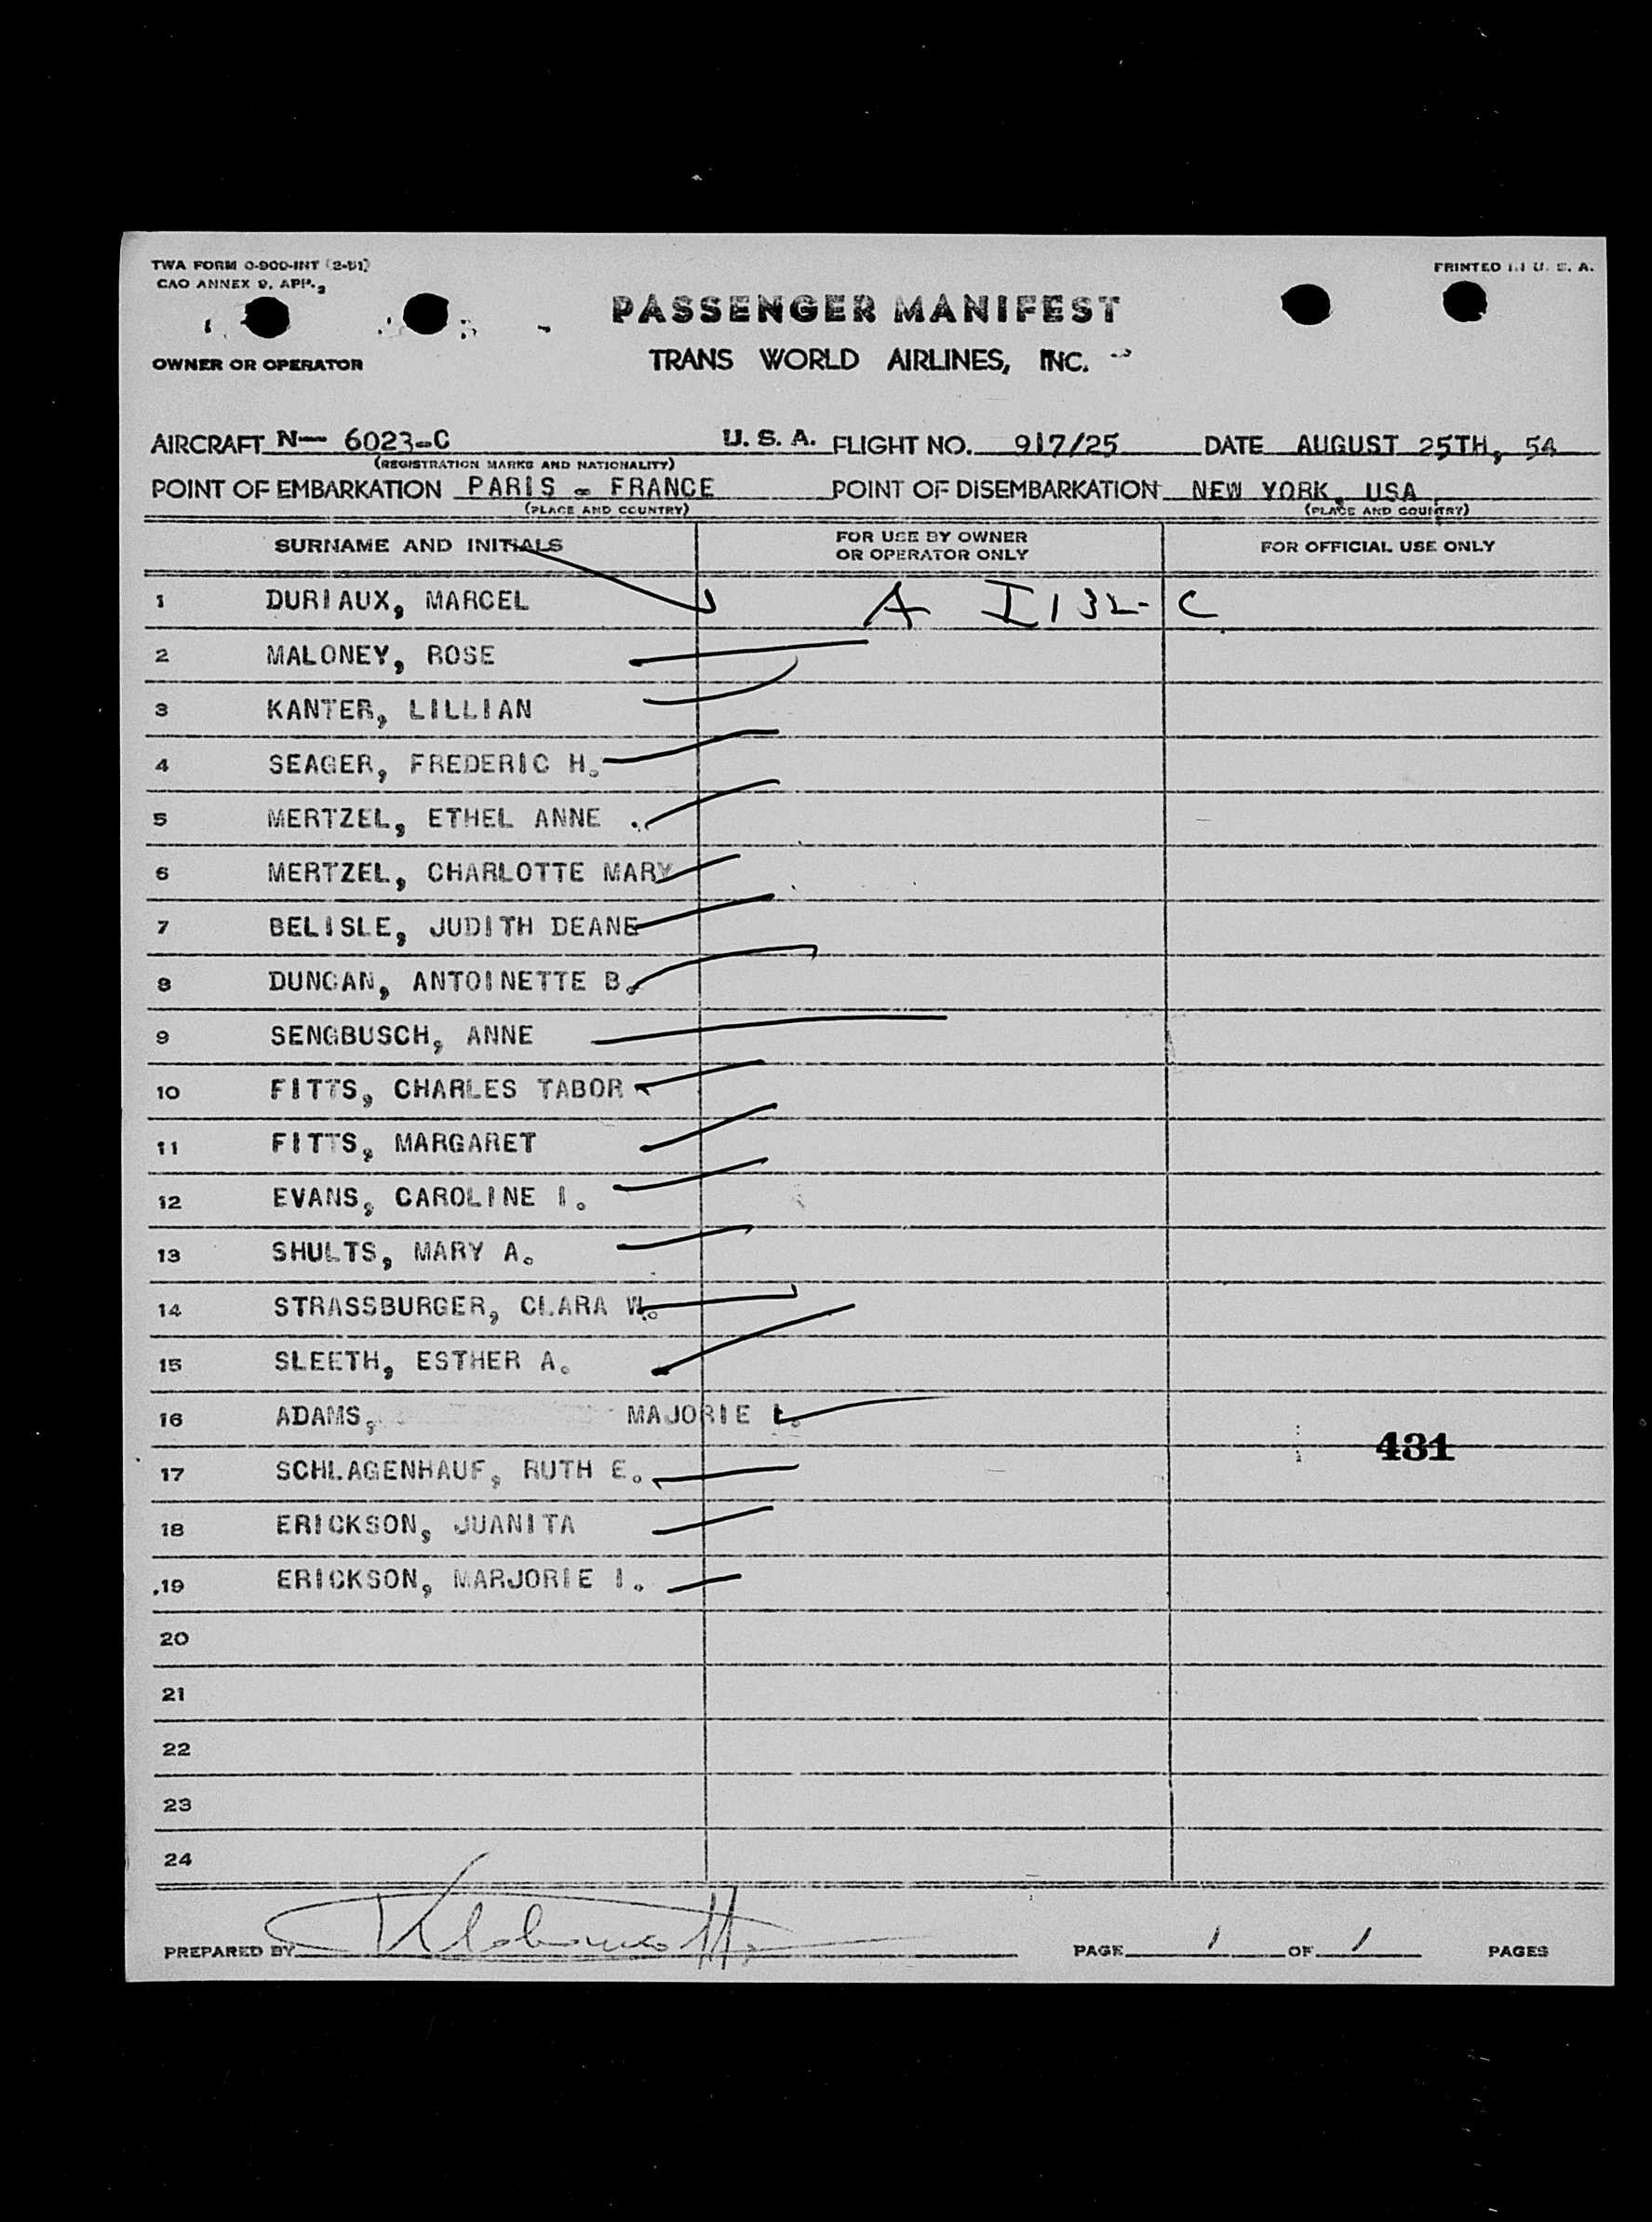 TWA FORM O-900-INT (2-51)
PRINTED IN U. S. A.
CAO ANNEX 9, APP. 2
PASSENGER MANIFEST
OWNER OR OPERATOR
TRANS WORLD AIRLINES, INC.
AIRCRAFT N— 6023-C U. S. A. FLIGHT NO. 917/25 DATE AUGUST 25TH, 54
(REGISTRATION MARKS AND NATIONALITY)
POINT OF EMBARKATION PARIS - FRANCE POINT OF DISEMBARKATION NEW YORK, USA
(PLACE AND COUNTRY) (PLACE AND COUNTRY)
SURNAME AND INITIALS FOR USE BY OWNER OR OPERATOR ONLY FOR OFFICIAL USE ONLY
1 DURIAUX, MARCEL A I132-C
2 MALONEY, ROSE
3 KANTER, LILLIAN
4 SEAGER, FREDERIC H.
5 MERTZEL, ETHEL ANNE .
6 MERTZEL, CHARLOTTE MARY
7 BELISLE, JUDITH DEANE
8 DUNCAN, ANTOINETTE B.
9 SENGBUSCH, ANNE
10 FITTS, CHARLES TABOR
11 FITTS, MARGARET
12 EVANS, CAROLINE I.
13 SHULTS, MARY A.
14 STRASSBURGER, CLARA W.
15 SLEETH, ESTHER A.
16 ADAMS, MAJORIE L.
431
17 SCHLAGENHAUF, RUTH E.
18 ERICKSON, JUANITA
19 ERICKSON, MARJORIE I.
20
21
22
23
24
PREPARED BY PAGE 1 OF 1 PAGES